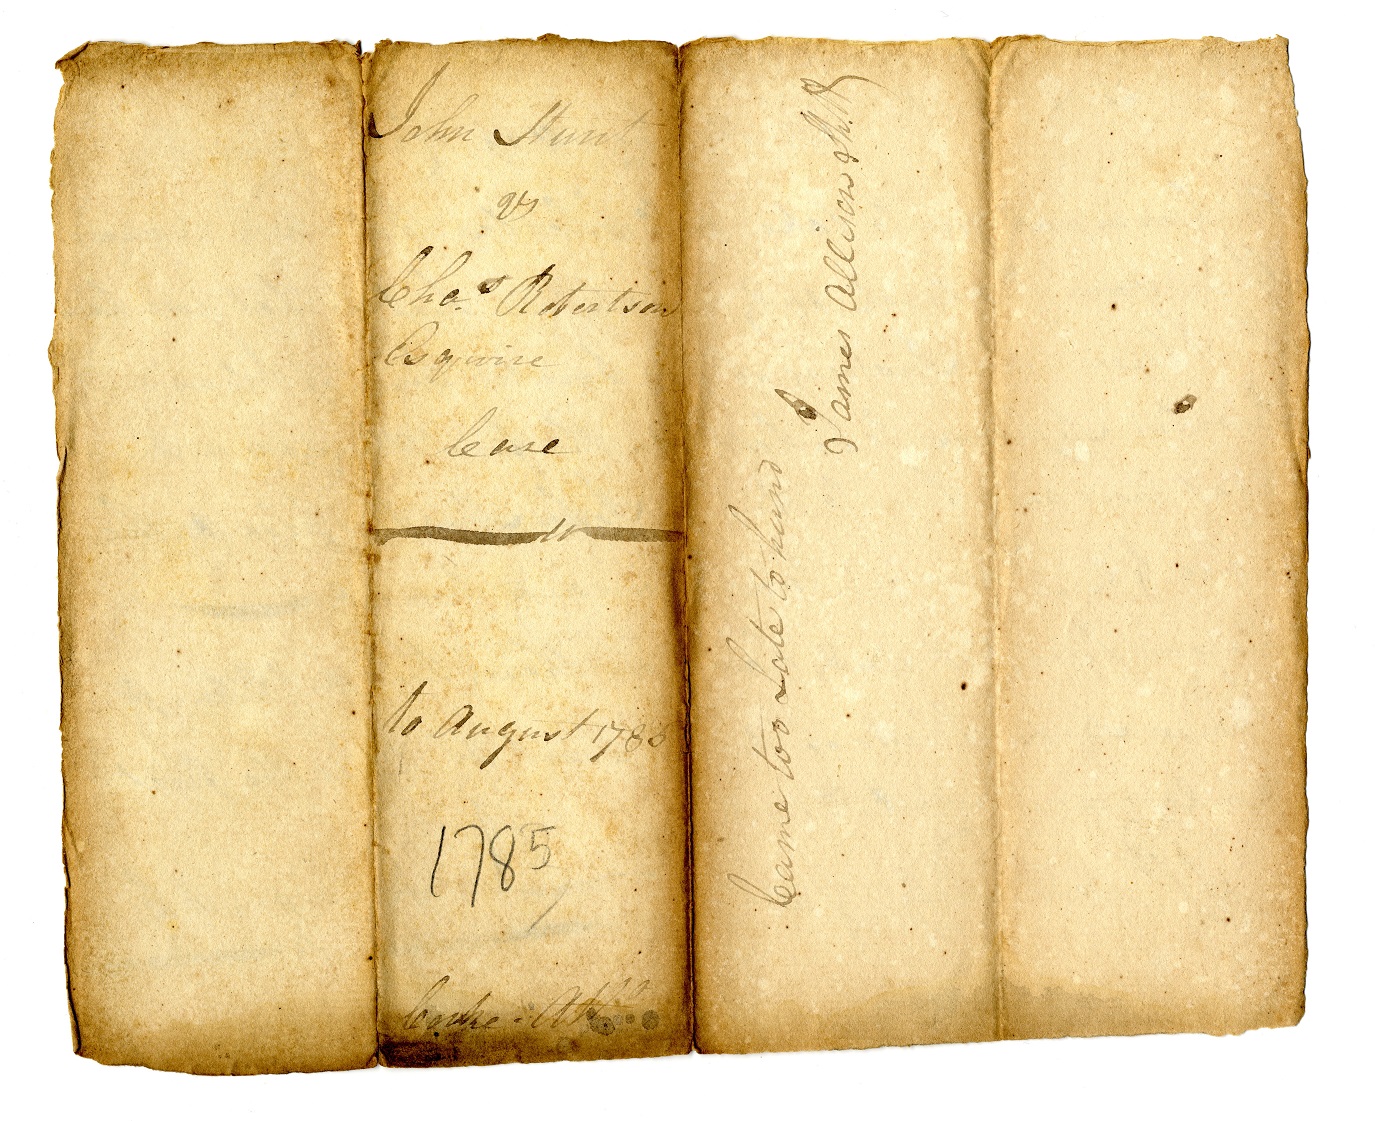 John Hunt
vs
Chas. Robertson
Esquire
Case
to August 1785
1785
Cocke Atty
Came too Late to hand
James Allison Sh.ff